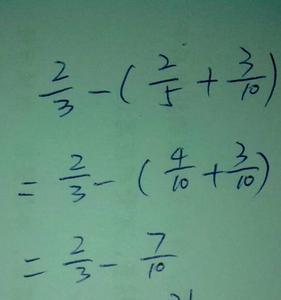 2/3 - (2/5 + 3/10)
= 2/3 - (4/10 + 3/10)
= 2/3 - 7/10